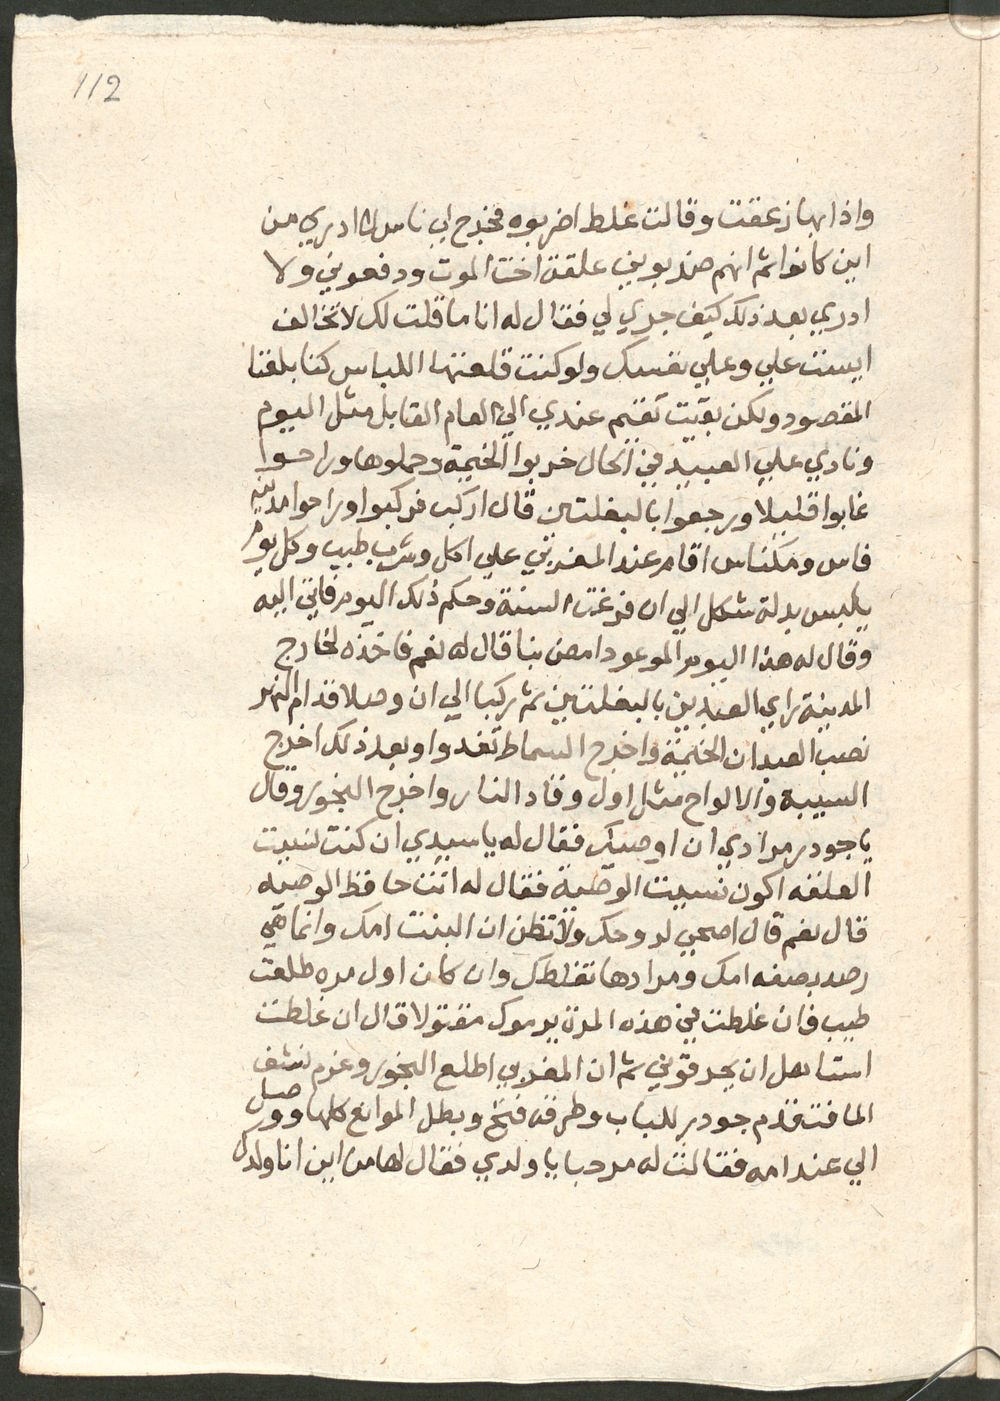 112
واذا بها زعقت وقالت غلط اضربوه فخرج لي ناس لا ادري من
اين كانوا ثم انهم ضربوني علقة اخت الموت ودفعوني ولا
ادري بعد ذلك كيف جري لي فقال له انا ما قلت لك لا تخالف
ايست علي وعلي نفسك ولو كنت قلعتها اللباس كنا بلغنا
المقصود ولكن بقيت تقيم عندي الي العام القابل مثل اليوم
ونادي علي العبيد في الحال خربوا الخيمة وحملوها وراحوا
غابوا قليلا ورجعوا بالبغلتين قال اركب فركبوا وراحوا مدينة
فاس ومكناس اقام عند المغربي علي اكل وشرب طيب وكل يوم
يلبس بدلة شكل الي ان فرغت السنة وحكم ذلك اليوم فاتي اليه
وقال له هذا اليوم الموعود امض بنا قال له نعم فاخذه لخارج
المدينة راي العبدين بالبغلتين ثم ركبا الي ان وصلا قدام النهر
نصب العبدان الخيمة واخرج السماط تغدوا وبعد ذلك اخرج
السيبة والالواح مثل اول وقاد النار واخرج البخور وقال
يا جودر مرادي ان اوصيك فقال له يا سيدي ان كنت نسيت
العلقه اكون نسيت الوصية فقال له انت حافظ الوصيه
قال نعم قال اصحي لروحك ولا تظن ان البنت امك وانما هي
رصد بصفه امك ومرادها تغلطك وان كان اول مره طلعت
طيب فان غلطت في هذه المرة يرموك مقتولا قال ان غلطت
استاهل ان يحرقوني ثم ان المغربي اطلع البخور وعزم نشف
الما فتقدم جودر للباب وطرقه فتح وبطل الموانع كلها ووصل
الي عند امه فقالت له مرحبا يا ولدي فقال لها من اين انا ولدك